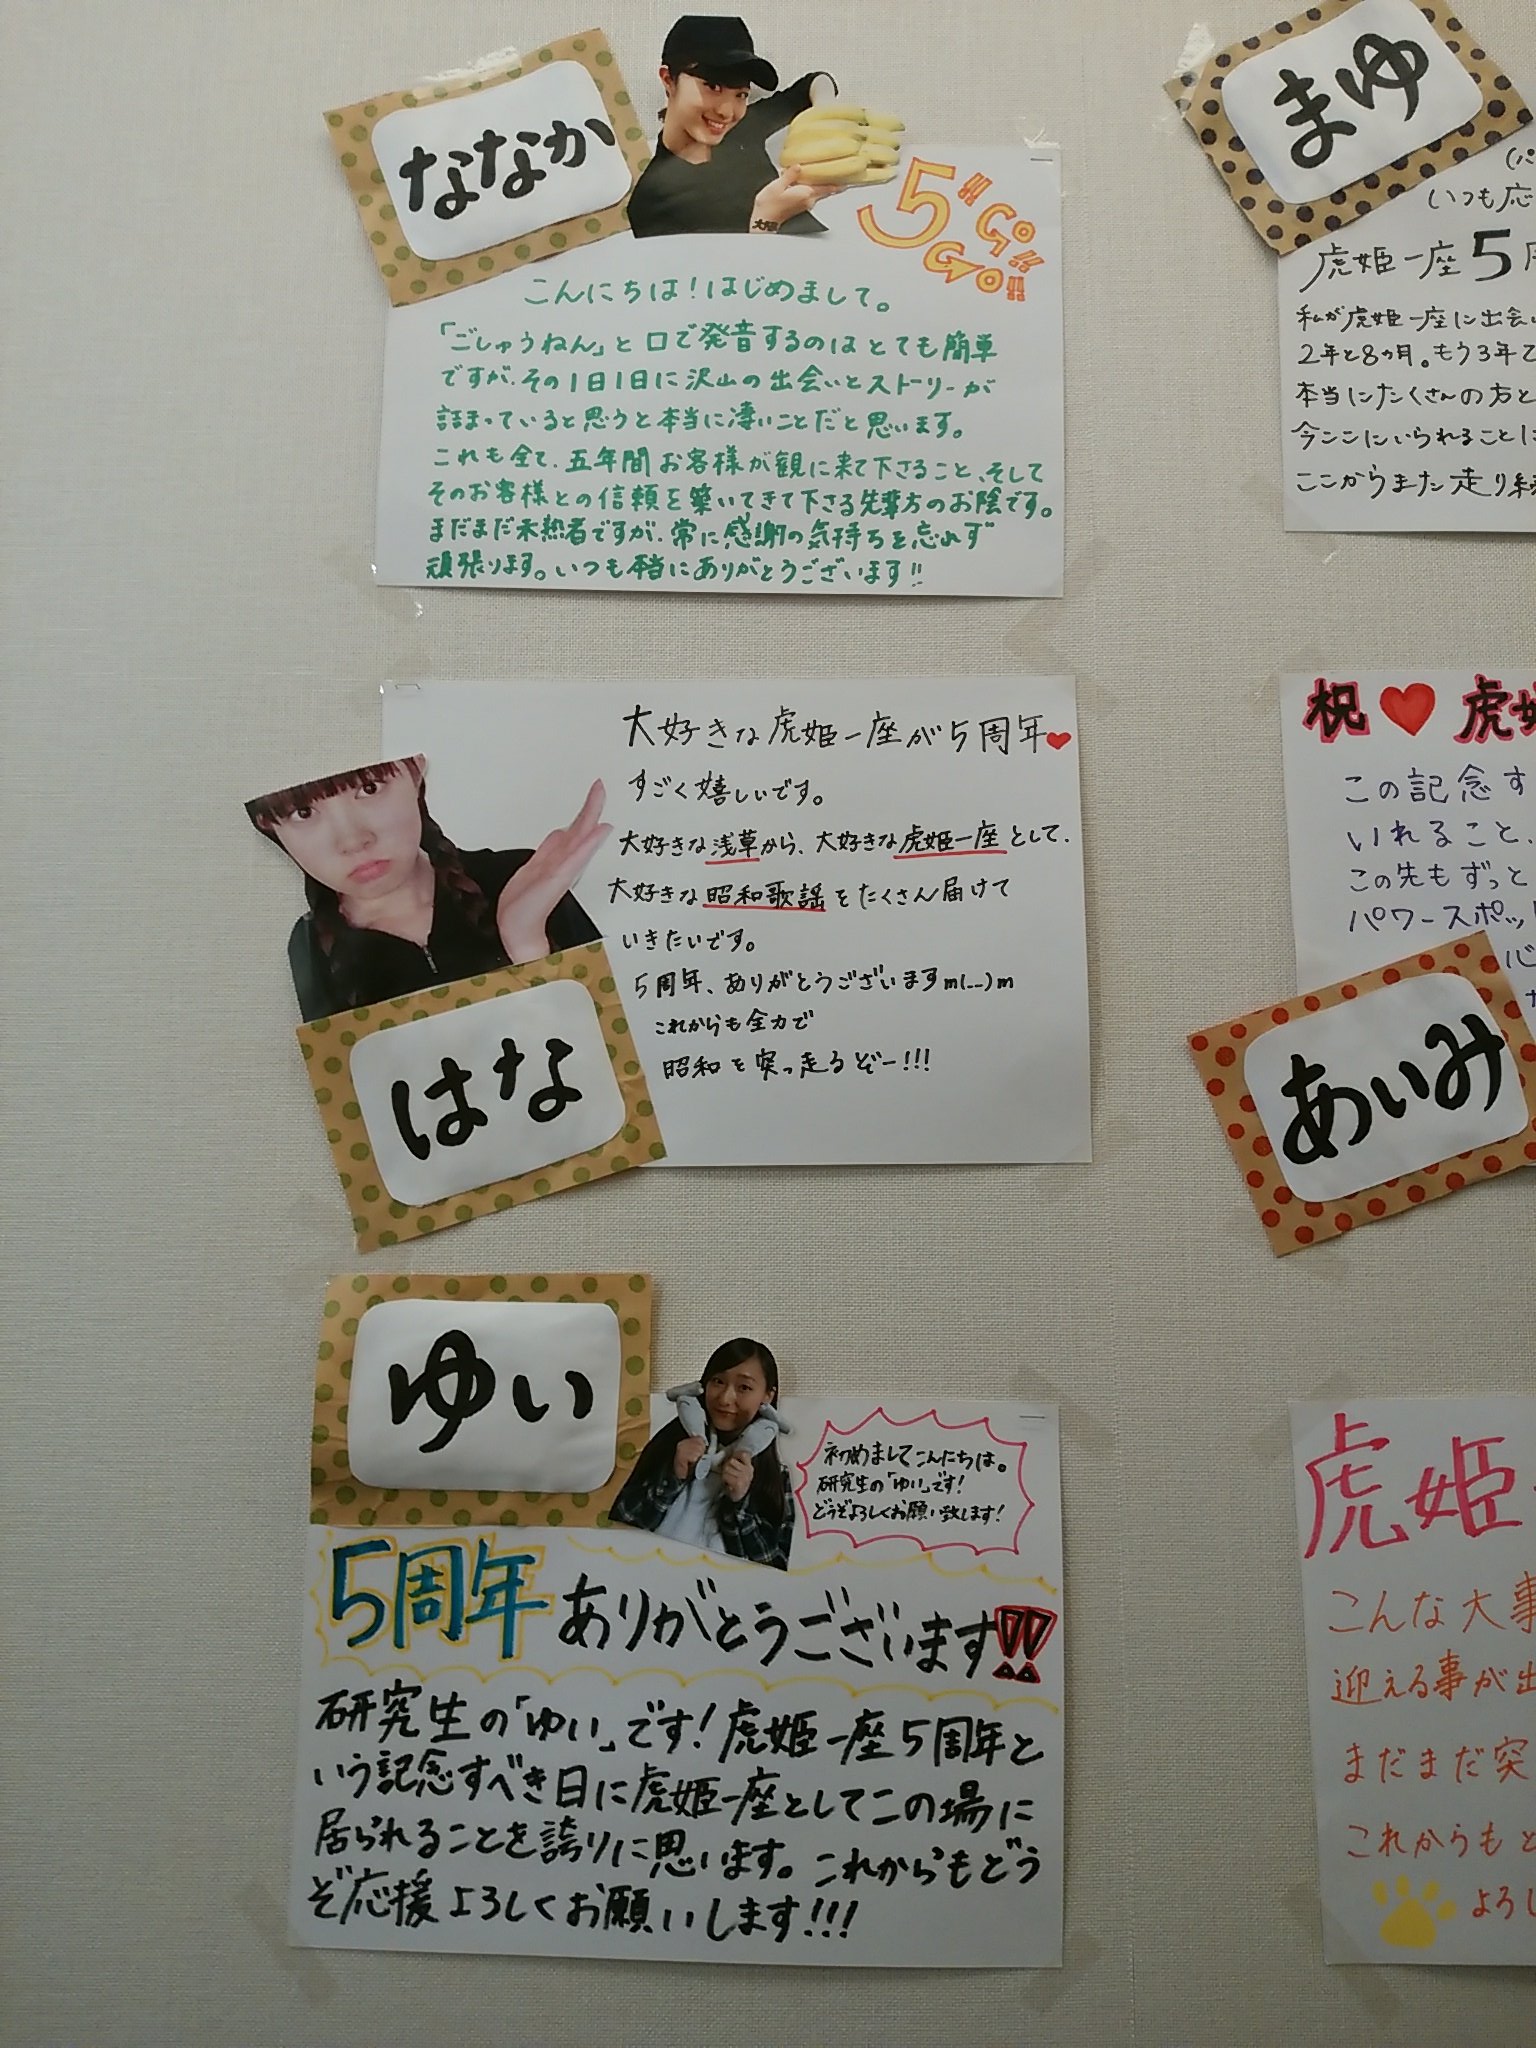 ななか
5!! Go!! Go!!
こんにちは!はじめまして。
「ごしゅうねん」と口で発音するのはとても簡単
ですが、その1日1日に沢山の出会いとストーリーが
詰まっていると思うと本当に凄いことだと思います。
これも全て、五年間お客様が観に来て下さること、そして
そのお客様との信頼を築いてきて下さる先輩方のお陰です。
まだまだ未熟者ですが、常に感謝の気持ちを忘れず
頑張ります。いつも本当にありがとうございます!!
大好きな虎姫一座が5周年
すごく嬉しいです。
大好きな浅草から、大好きな虎姫一座として、
大好きな昭和歌謡をたくさん届けて
いきたいです。
5周年、ありがとうございますm(_ _)m
これからも全力で
昭和を突っ走るぞー!!!
はな
ゆい
初めましてこんにちは。
研究生の「ゆい」です!
どうぞよろしくお願い致します!
5周年ありがとうございます!!
研究生の「ゆい」です!虎姫一座5周年と
いう記念すべき日に虎姫一座としてこの場に
居られることを誇りに思います。これからもどう
ぞ応援よろしくお願いします!!!
まゆ
(パ
いつも応
虎姫一座5周
私が虎姫一座に出会い
2年と8ヵ月。もう3年て
本当にたくさんの方と
今ここにいられることに
ここからまた走り続
祝 虎姫
この記念す
いれること、
この先もずっと
パワースポット
心
あいみ
虎姫
こんな大事
迎える事が出
まだまだ突
これからもど
よろし